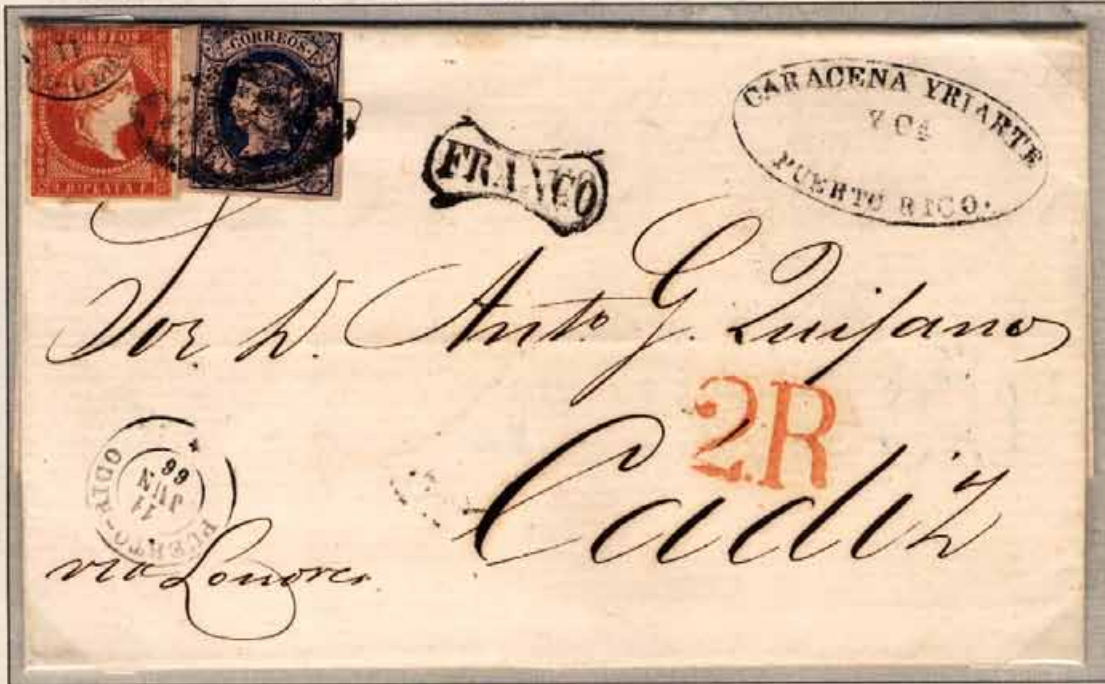 CORREOS
2 Rl PLATA F.
CORREOS
FRANCO
CARACENA YRIARTE
Y Ca
PUERTO RICO.
Sor. D. Anto. G. Quijano
2R
Cadiz
PUERTO-RICO
11
JUN
66
via Londres